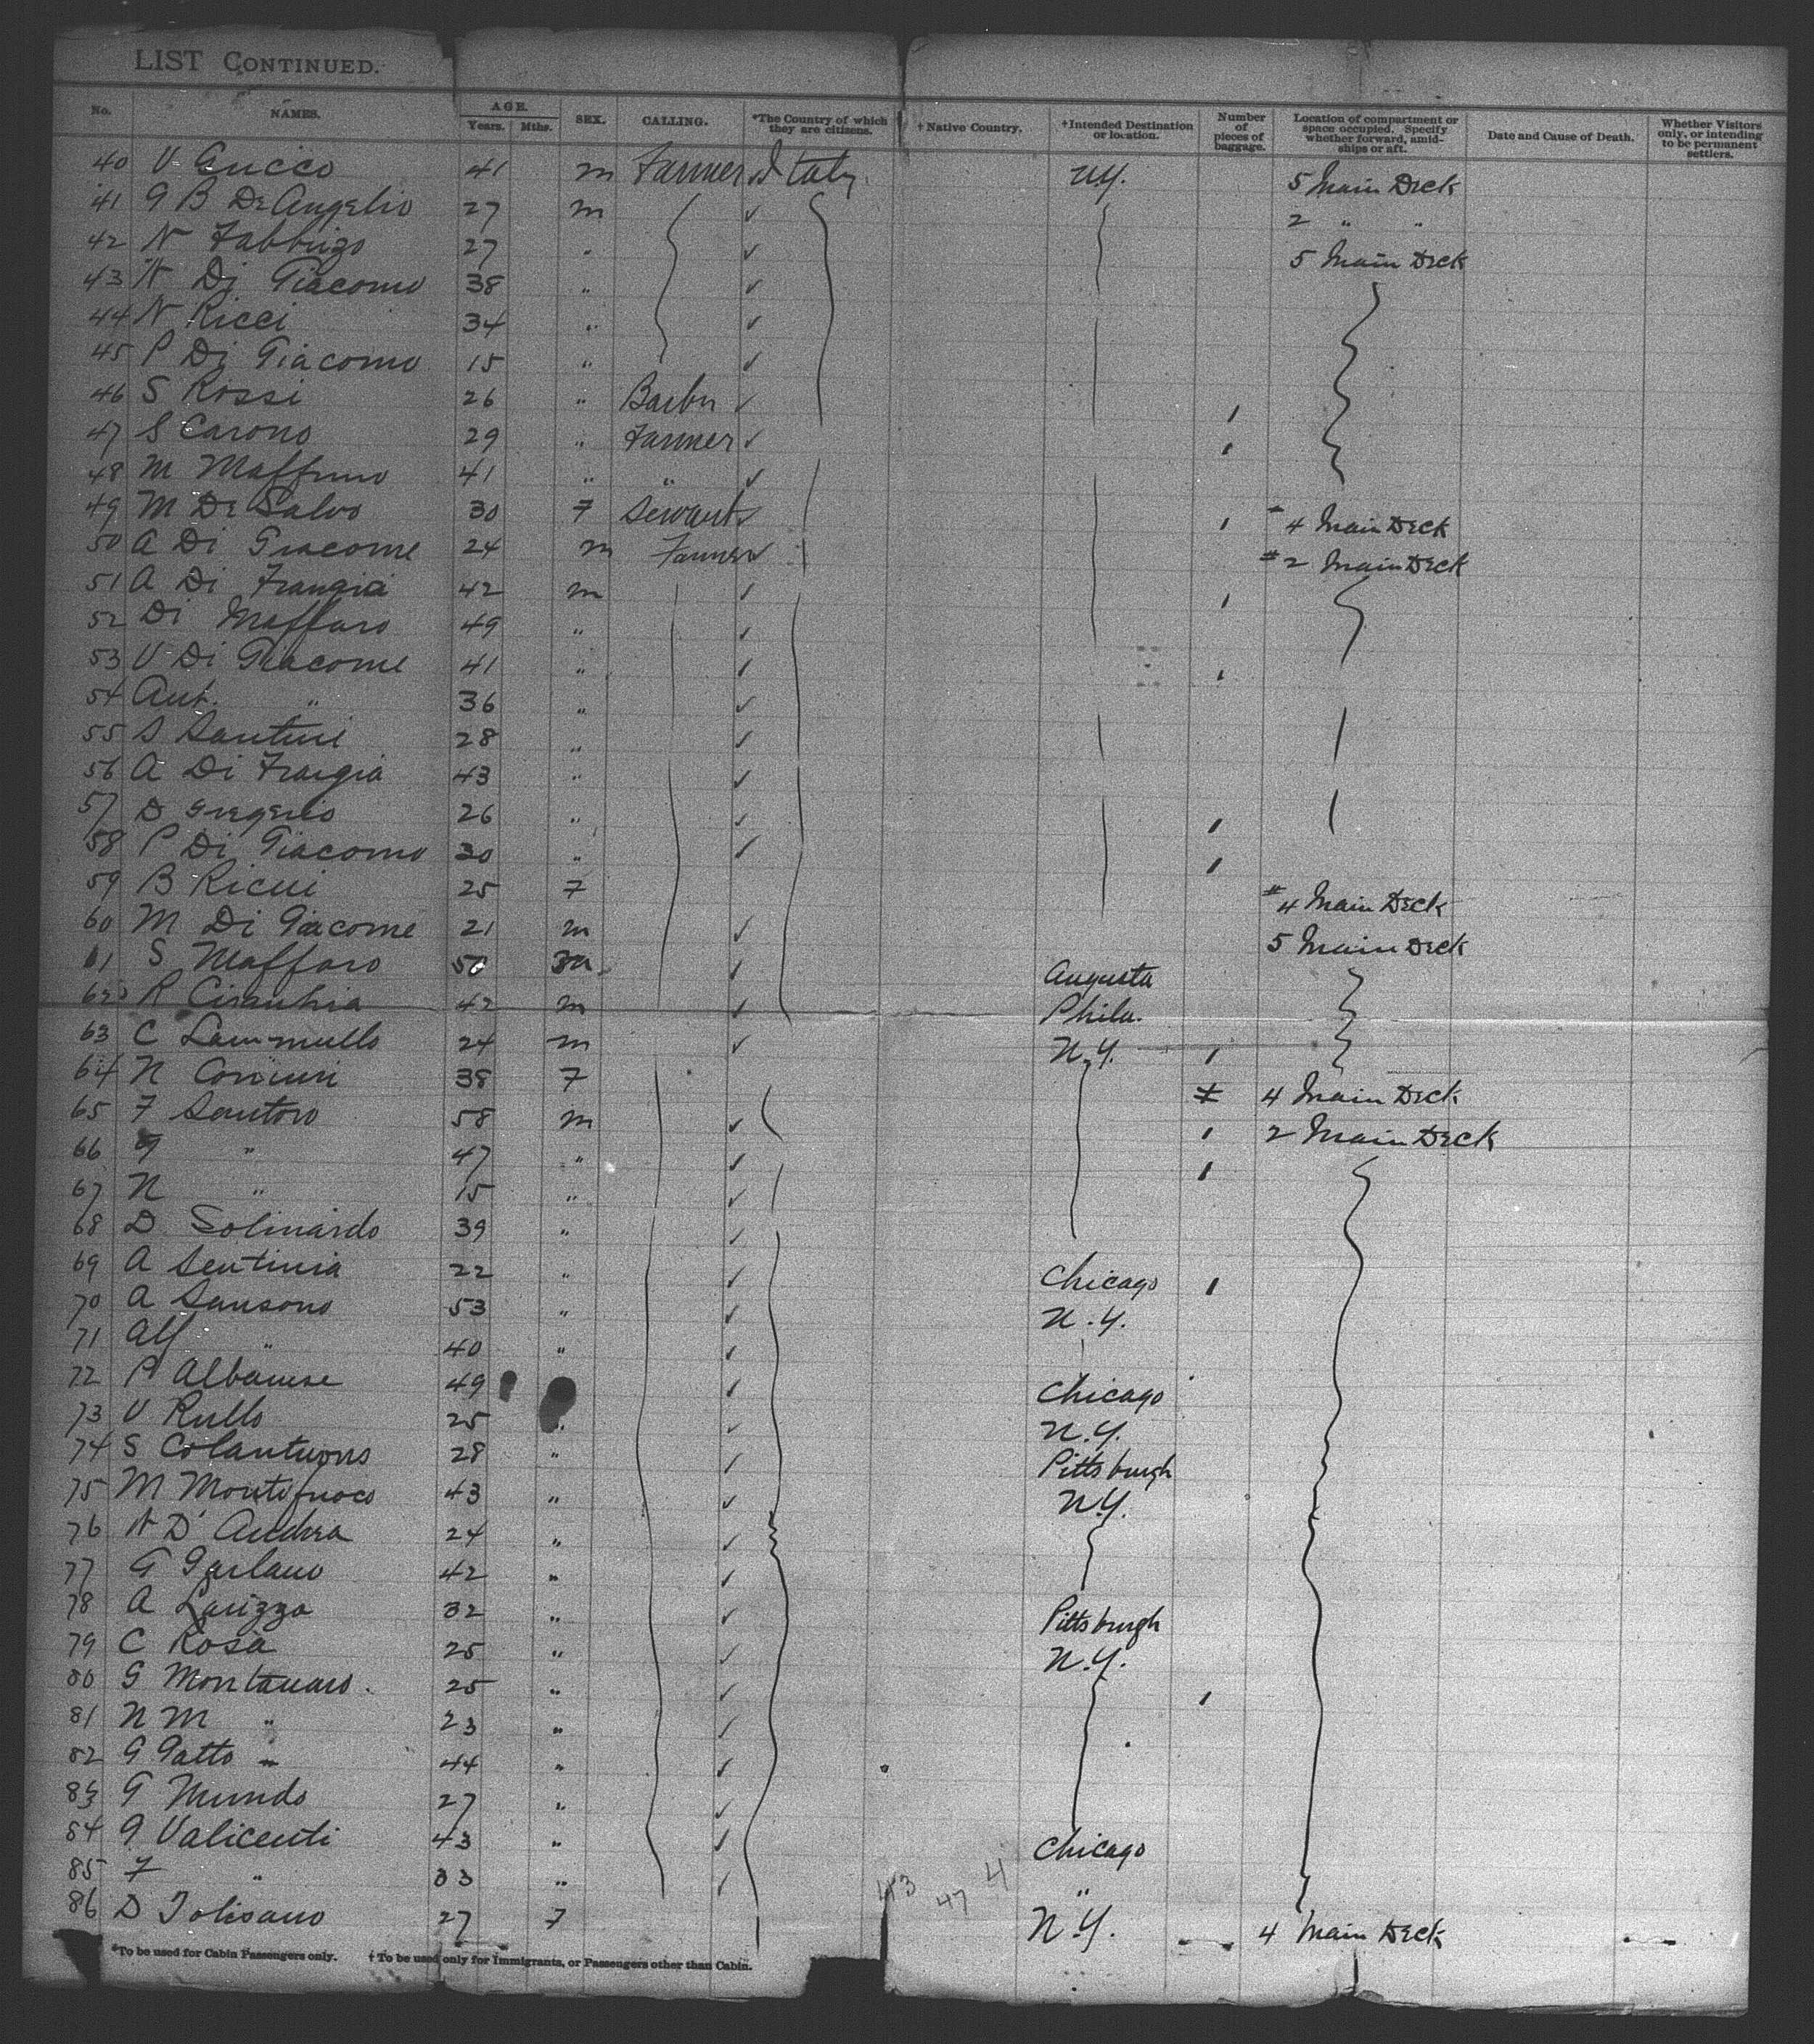 LIST CONTINUED.
No. NAMES. AGE. Years. Mths. SEX. CALLING. *The Country of which they are citizens. †Native Country. †Intended Destination or location. Number of pieces of baggage. Location of compartment or space occupied. Specify whether forward, amidships or aft. Date and Cause of Death. Whether Visitors only, or intending to be permanent settlers.
40 V Cucco 41 m Farmer Italy N.Y. 5 Main Deck
41 G B De Angelio 27 m ✓ 2 " "
42 N Fabbrizo 27 " ✓ 5 Main Deck
43 N Di Giacomo 38 " ✓
44 N Ricci 34 " ✓
45 P Di Giacomo 15 " ✓
46 S Rossi 26 " Barber ✓ 1
47 S Carono 29 " Farmer ✓ 1
48 M Maffuro 41 " " ✓
49 M De Salvo 30 F Servant ✓ 1 4 Main Deck
50 A Di Giacome 24 m Farmer ✓ # 2 Main Deck
51 A Di Frangia 42 m ✓ 1
52 Di Maffaro 49 " ✓
53 V Di Giacome 41 " ✓ 1
54 Ant. " 36 " ✓
55 S Santini 28 " ✓
56 A Di Frangia 43 " ✓
57 D Gregerio 26 " ✓ 1
58 P Di Giacomo 30 " ✓ 1
59 B Ricci 25 F # 4 Main Deck
60 M Di Giacome 21 m ✓ 5 Main Deck
61 S Maffaro 50 m ✓ Augusta
62 R 42 m ✓ Phila.
63 C 24 m ✓ N.Y. 1
64 N 38 F # 4 Main Deck
65 F Santoro 58 m ✓ 1 2 Main Deck
66 G " 47 " ✓ 1
67 N " 15 " ✓
68 D Solinardo 39 " ✓
69 A Sentinia 22 " ✓ Chicago 1
70 A Sansono 53 " ✓ N.Y.
71 Alf " 40 " ✓
72 P Albanese 49 ✓ Chicago
73 V Rullo 25 " ✓ N.Y.
74 S Colantuono 28 " ✓ Pittsburgh
75 M Montifuoco 43 " ✓ N.Y.
76 N D'Andrea 24 " ✓
77 G Garlano 42 " ✓
78 A Larizza 32 " ✓ Pittsburgh
79 C Rosa 25 " ✓ N.Y.
80 G Montanaro. 25 " ✓ 1
81 N M " 23 " ✓
82 G Gatto 44 " ✓
83 G Mundo 27 " ✓
84 G Valicenti 43 " ✓ Chicago
85 F " 33 " ✓ "
86 D Tolisano 27 F N.Y. 4 Main Deck
43 47 4
*To be used for Cabin Passengers only. †To be used only for Immigrants, or Passengers other than Cabin.